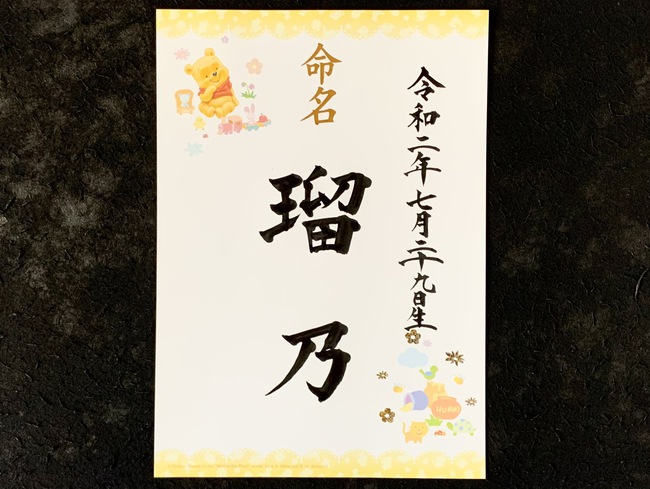 令和二年七月二十九日生
命名
瑠乃
HUNNY